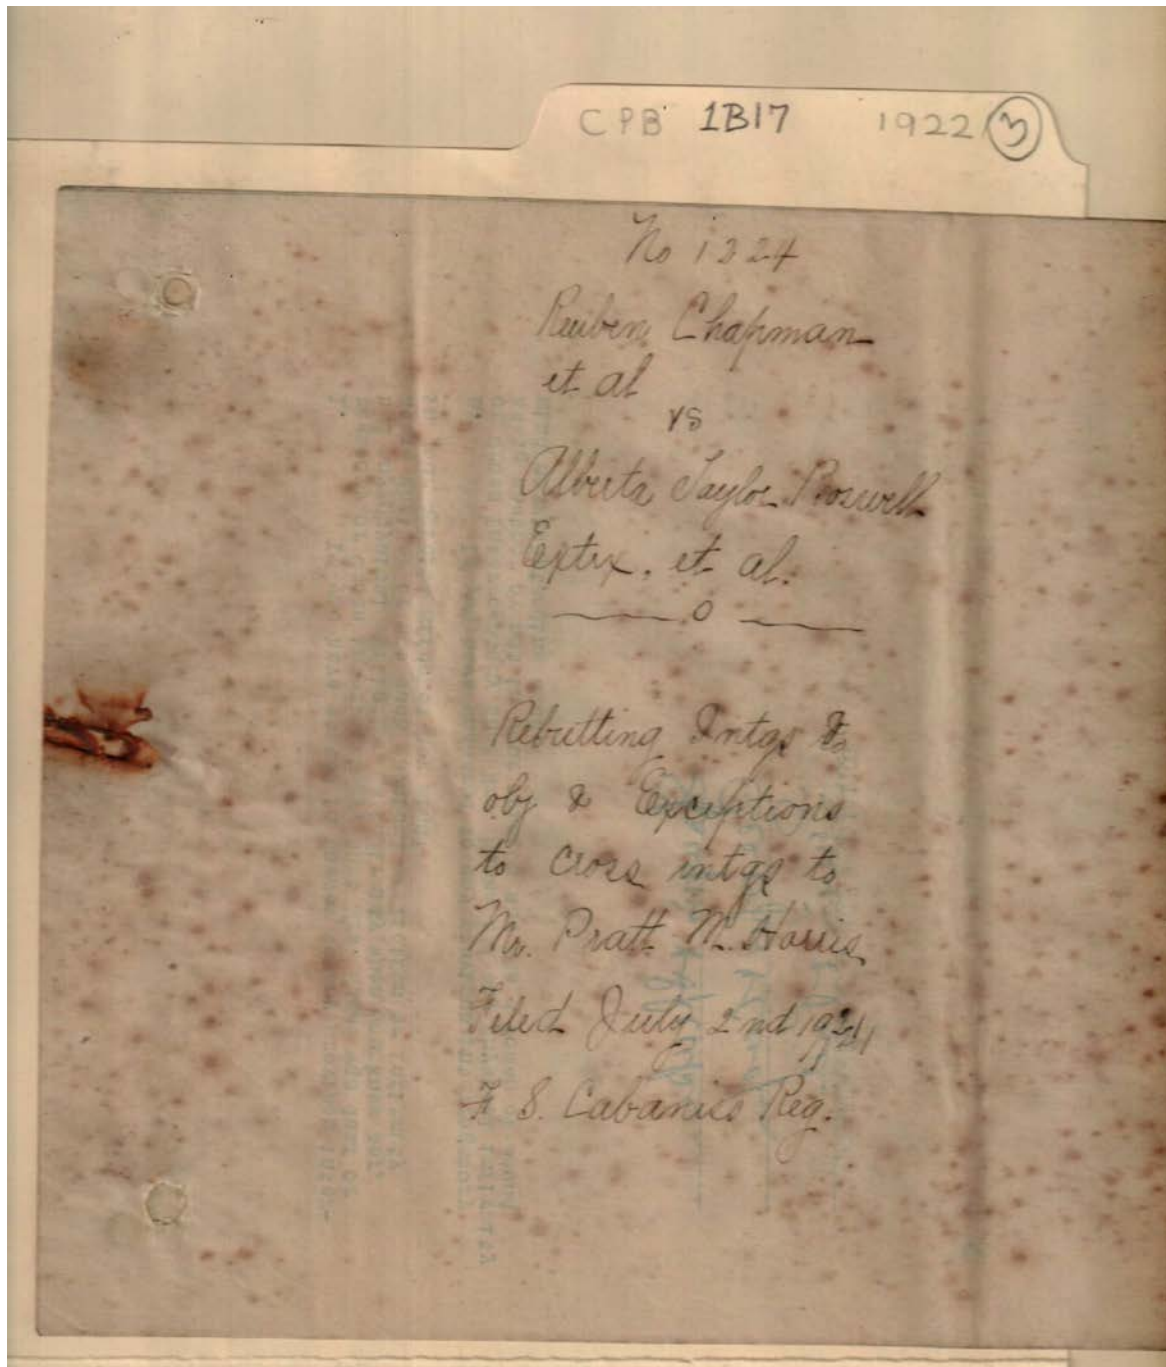 CPB 1B17 1922 3
No 1324
Reuben Chapman
et al
vs
Alberta Taylor Boswell
Extrx. et al.
o
Rebutting Intgs &
obj & Exceptions
to cross intgs to
Mr. Pratt M. Harris
Filed July 2nd
F S. Cabaniss Reg.